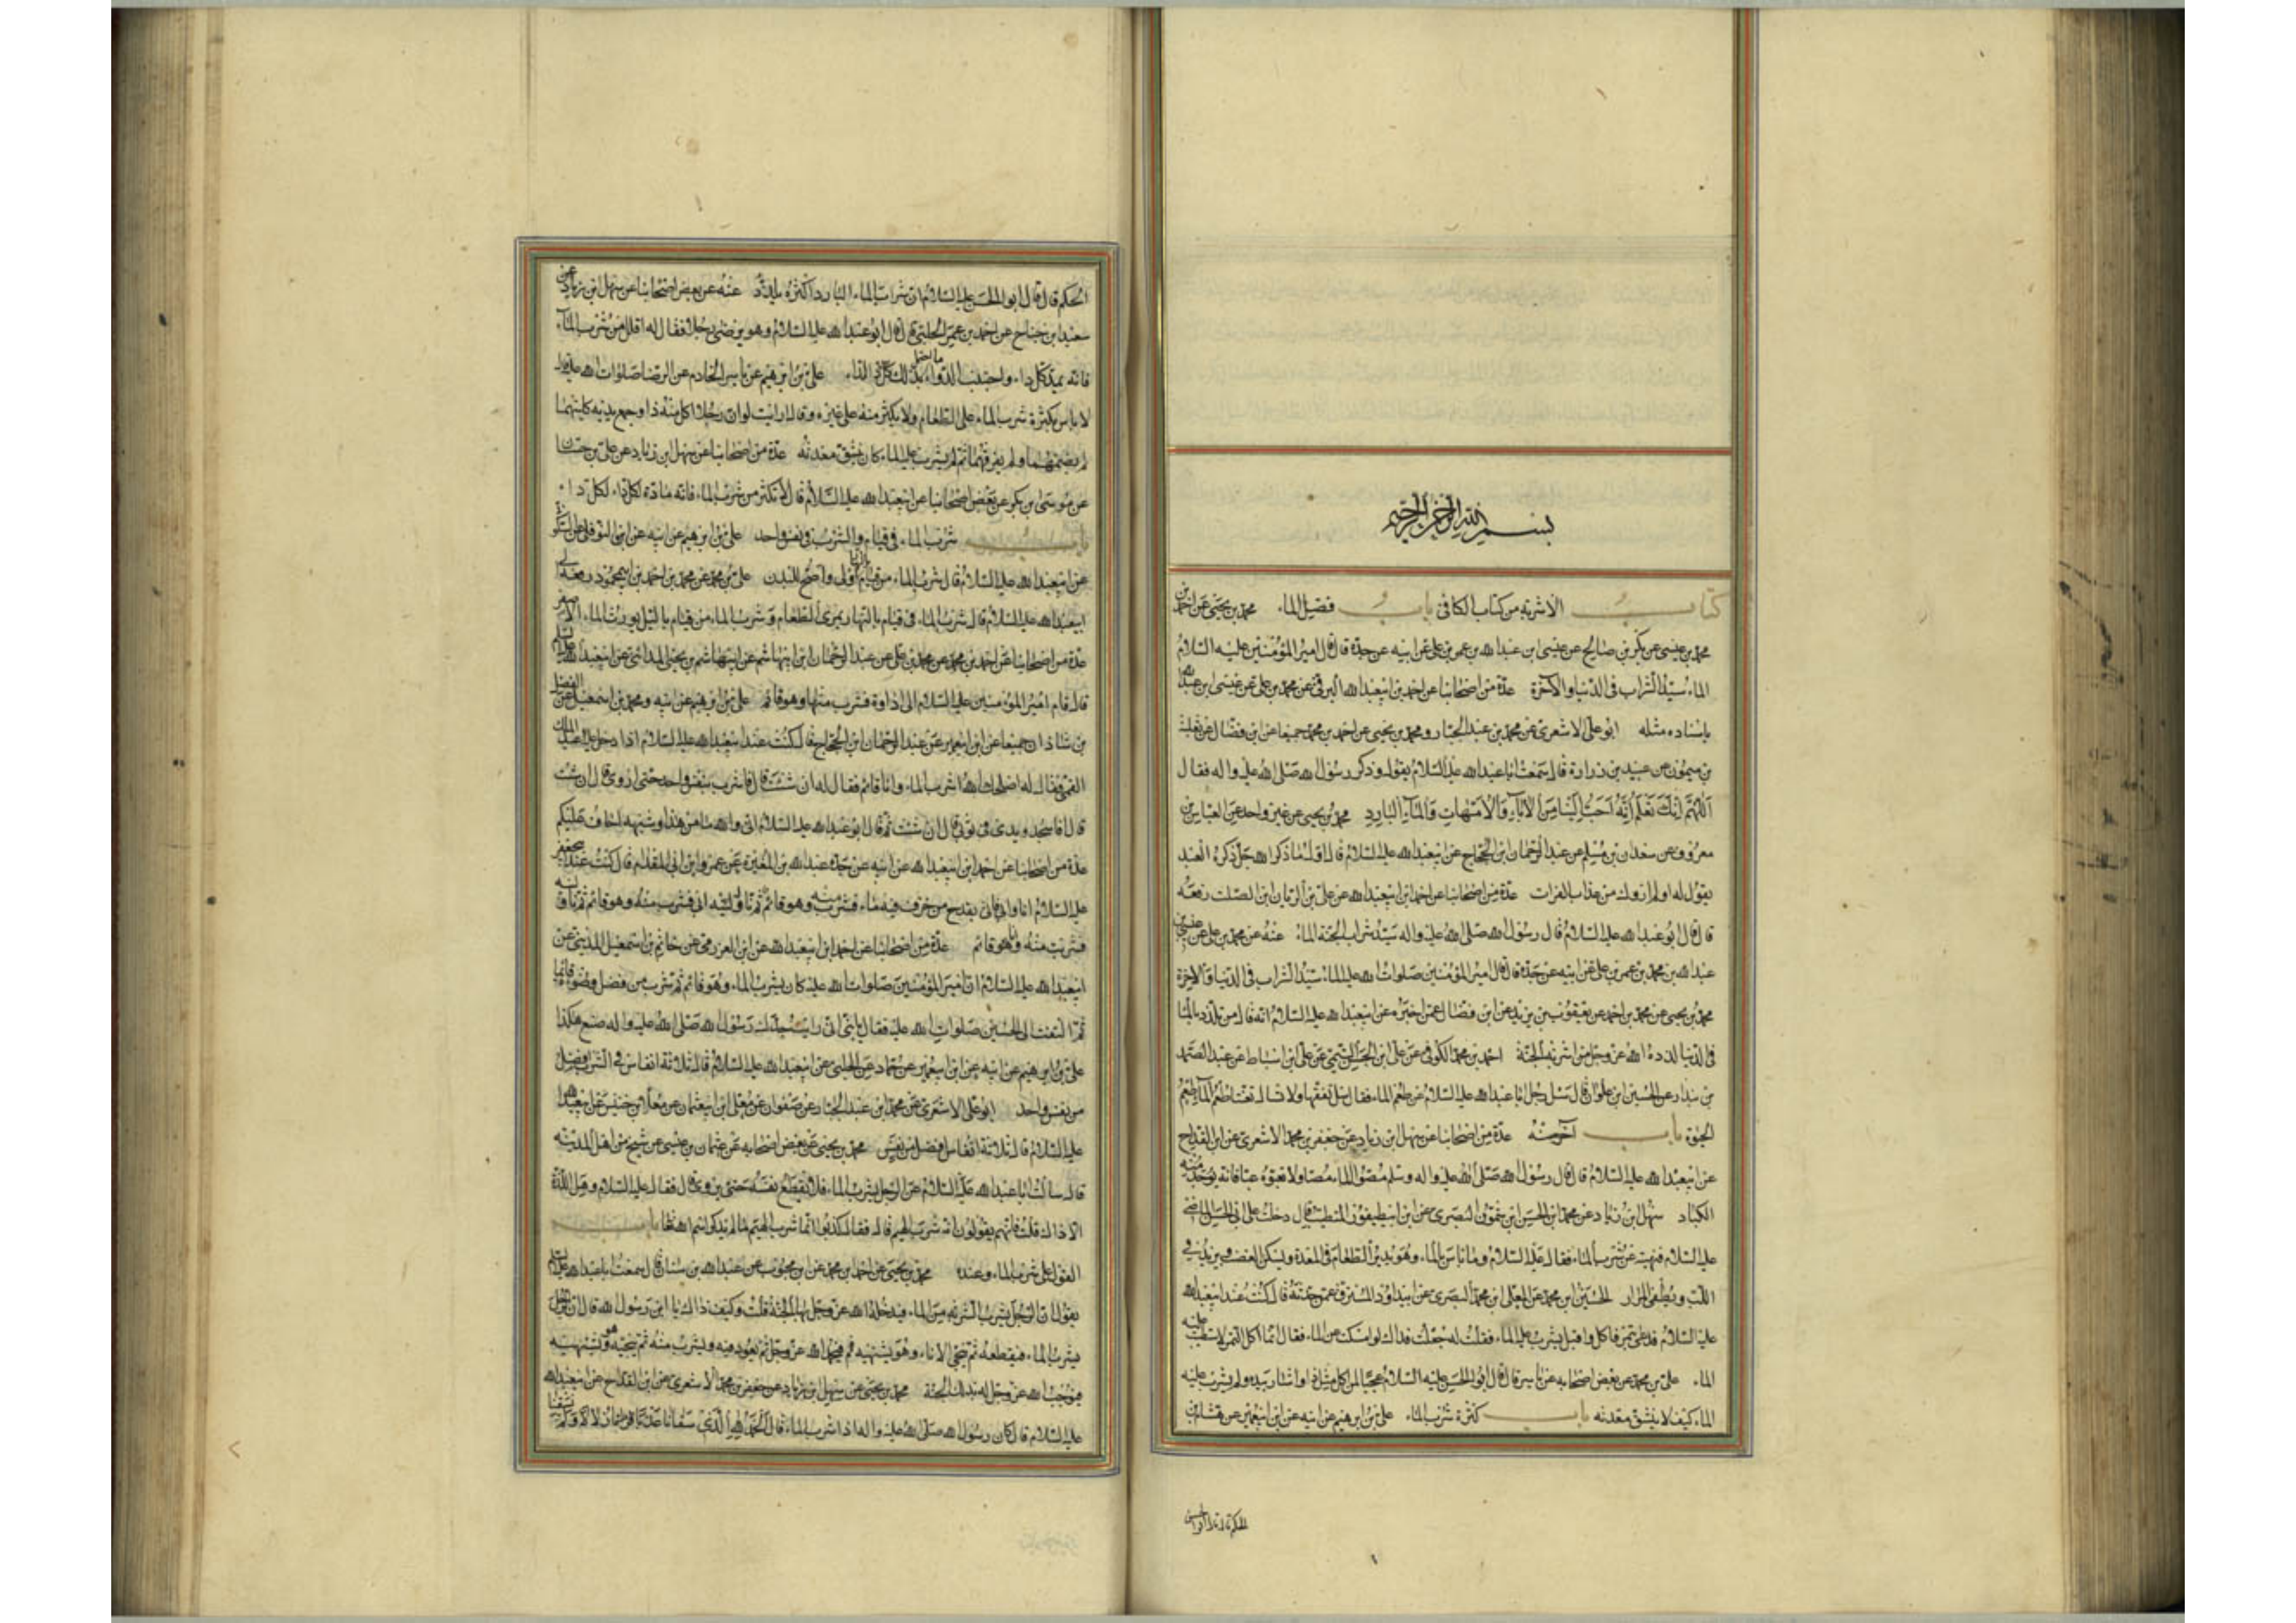 بسم الله الرحمن الرحيم
كتاب الاشربة من كتاب الكافي باب فضل الماء محمد بن يحيى عن احمد بن
محمد بن عيسى عن بكر بن صالح عن عيسى ابن عبد الله بن عمر بن علي عن ابيه عن جده قال قال امير المؤمنين عليه السلام
الماء سيد الشراب في الدنيا والآخرة عدة من اصحابنا عن احمد بن ابيعبد الله البرقي عن محمد بن علي عن عيسى ابن عبد الله
باسناده مثله ابو علي الاشعري عن محمد بن عبد الجبار ومحمد بن يحيى عن احمد بن محمد جميعا عن ابن فضال عن ثعلبة
بن ميمون عن عبيد بن زرارة قال سمعت ابا عبد الله عليه السلام يقول وذكر رسول الله صلى الله عليه واله فقال
اللهم انك تعلم انه احب الينا من الآباء والامهات والماء البارد محمد بن يحيى عن غير واحد عن العباس بن
معروف عن سعدان بن مسلم عن عبد الرحمان ابن الحجاج عن ابيعبد الله عليه السلام قال
يقول له اولم اروك من عذاب الفرات عدة من اصحابنا عن احمد ابن ابيعبد الله عن علي بن الريان ابن الصلت رفعه
قال قال ابو عبد الله عليه السلام قال رسول الله صلى الله عليه واله سيد شراب الجنة الماء عنه عن محمد بن علي عن عيسى بن
عبد الله بن محمد بن عمر بن علي عن ابيه عن جده قال قال امير المؤمنين صلوات الله عليه الماء سيد الشراب في الدنيا والاخرة
محمد بن يحيى عن محمد بن احمد عن يعقوب بن يزيد عن ابن فضال عمن اخبره عن ابيعبد الله عليه السلام انه قال من تلذذ بالماء
في الدنيا لذذه الله عز وجل من اشربة الجنة احمد بن محمد الكوفي عن علي ابن الحسن التيمي عن علي ابن اسباط عن عبد الصمد
بن بندار عن الحسين ابن علوان قال سئل رجل ابا عبد الله عليه السلام عن طعم الماء فقال سل تفقها ولا تسال تعنتا طعم الماء طعم
الحيوة باب آخر منه عدة من اصحابنا عن سهل ابن زياد عن جعفر بن محمد الاشعري عن ابن القداح
عن ابيعبد الله عليه السلام قال قال رسول الله صلى الله عليه واله وسلم مصوا الماء مصا ولا تعبوه عبا فانه يوجد منه
الكباد سهل ابن زياد عن محمد ابن الحسن ابن شمون البصري عن ابن ابيطيفور المتطبب قال دخلت على ابي الحسن الماضي
عليه السلام فنهيته عن شرب الماء فقال عليه السلام وما باس بالماء وهو يدير الطعام في المعدة ويسكن الغضب ويزيد في
اللب ويطفي المرار الحسين ابن محمد عن المعلى ابن محمد البصري عن ابيداود المسترق عمن حدثه قال كنت عند ابيعبد الله
عليه السلام فدعى بتمر فاكل واقبل يشرب عليه الماء فقلت له جعلت فداك لو امسكت عن الماء فقال انما اكل التمر لاستطيب عليه
الماء علي بن محمد عن بعض اصحابه عن ياسر قال قال ابو الحسن عليه السلام عجبا لمن اكل مثل ذا واشار بيده ولم يشرب عليه
الماء كيف لا ينشق معدته باب كثرة شرب الماء علي بن ابرهيم عن ابيه عن ابن ابيعمير عن هشام بن
الحكم قال قال ابو الحسن
الحكم قال قال ابو الحسن عليه السلام ان شراب الماء البارد اكثره تلذذ عنه عن بعض اصحابنا عن سهل ابن زياد عن
سعيد ابن جناح عن احمد بن عمر الحلبي قال قال ابو عبد الله عليه السلام وهو يوصي رجلا فقال له اقلل من شرب الماء
فانه يمد كل داء واجتنب الدواء ما احتمل بدنك الداء علي بن ابرهيم عن ياسر الخادم عن الرضا صلوات الله عليه قال
لا باس بكثرة شرب الماء على الطعام ولا يكثر منه على غيره وقال ارايت لو ان رجلا اكل مثل ذا وجمع يديه كلتيهما
لم يضمهما ولم يفرقهما ثم لم يشرب عليه الماء كان ينشق معدته عدة من اصحابنا عن سهل ابن زياد عن علي بن حسان
عن موسى بن بكر عن بعض اصحابنا عن ابيعبد الله عليه السلام قال لا تكثر من شرب الماء فانه مادة لكل داء
باب شرب الماء في قيام والشرب في نفس واحد علي بن ابرهيم عن ابيه عن النوفلي عن السكوني
عن ابيعبد الله عليه السلام قال شرب الماء من قيام اقوى واصح للبدن علي بن محمد عن محمد بن احمد بن ابيمحمود رفعه الى
ابيعبد الله عليه السلام قال شرب الماء في قيام بالنهار يمرى الطعام وشرب الماء من قيام بالليل يورث الماء الاصفر
عدة من اصحابنا عن احمد بن محمد عن محمد بن علي عن عبد الرحمان ابن ابيهاشم عن ابراهيم بن يحيى المدائني عن ابيعبد الله عليه السلام
قال قام امير المؤمنين عليه السلام الى اداوة فشرب منها وهو قائم علي بن ابرهيم عن ابيه ومحمد بن اسمعيل عن الفضل
بن شاذان جميعا عن ابن ابيعمير عن عبد الرحمان ابن الحجاج قال كنت عند ابيعبد الله عليه السلام اذا دخل عليه عبد الملك
القمي فقال له اصلحك الله اشرب الماء وانا قائم فقال له ان شئت قال فاشرب بنفس واحد حتى اروى قال ان شئت
قال فاسجد ويدي في ثوبي قال ان شئت ثم قال ابو عبد الله عليه السلام اني والله ما من هذا وشبهه اخاف عليكم
عدة من اصحابنا عن احمد ابن ابيعبد الله عن ابيه عن جده عبد الله بن المغيرة عن عمرو ابن ابي المقدام قال كنت عند ابيجعفر
عليه السلام انا وابي فاتي بقدح من خزف فيه ماء فشرب منه وهو قائم ثم ناوله ابي فشرب منه وهو قائم ثم ناولنيه
فشربت منه وانا قائم عدة من اصحابنا عن احمد ابن ابيعبد الله عن ابن العرزمي عن حاتم بن اسمعيل المديني عن
ابيعبد الله عليه السلام ان امير المؤمنين صلوات الله عليه كان يشرب الماء وهو قائم ثم شرب من فضل وضوئه قائما
ثم التفت الى الحسين صلوات الله عليه فقال يا بني اني رايت جدك رسول الله صلى الله عليه واله صنع هكذا
علي بن ابرهيم عن ابيه عن ابن ابيعمير عن حماد عن الحلبي عن ابيعبد الله عليه السلام قال ثلاثة انفاس في الشراب افضل
من نفس واحد ابو علي الاشعري عن محمد ابن عبد الجبار عن صفوان عن معلى ابن ابيعثمان عن معلى ابن خنيس عن ابيعبد الله
عليه السلام قال ثلاثة انفاس افضل من نفس محمد بن يحيى عن بعض اصحابه عن عثمان بن عيسى عن شيخ من اهل المدينة
قال سالت ابا عبد الله عليه السلام عن الرجل يشرب الماء فلا يقطع نفسه حتى يروى قال فقال عليه السلام وهل اللذة
الا ذاك قلت فانهم يقولون انه شرب الهيم قال فقال كذبوا انما شرب الهيم ما لم يذكر اسم الله عليه باب
القول على شرب الماء وعنده محمد بن يحيى عن احمد ابن محمد عن ابن محبوب عن عبد الله بن سنان قال سمعت ابا عبد الله عليه السلام
يقول ان الرجل يشرب الشربة من الماء فيدخله الله عز وجل بها الجنة قلت وكيف ذاك يا ابن رسول الله قال ان الرجل
يشرب الماء فيقطعه ثم ينحي الاناء وهو يشتهيه فيحمد الله عز وجل ثم يعود فيه ويشرب منه ثم ينحيه وهو يشتهيه
فيوجب الله عز وجل له بذلك الجنة محمد بن يحيى عن سهل ابن زياد عن جعفر بن محمد الاشعري عن ابن القداح عن ابيعبد الله
عليه السلام قال كان رسول الله صلى الله عليه واله اذا شرب الماء قال الحمد لله الذي سقانا عذبا زلالا ولم يسقنا